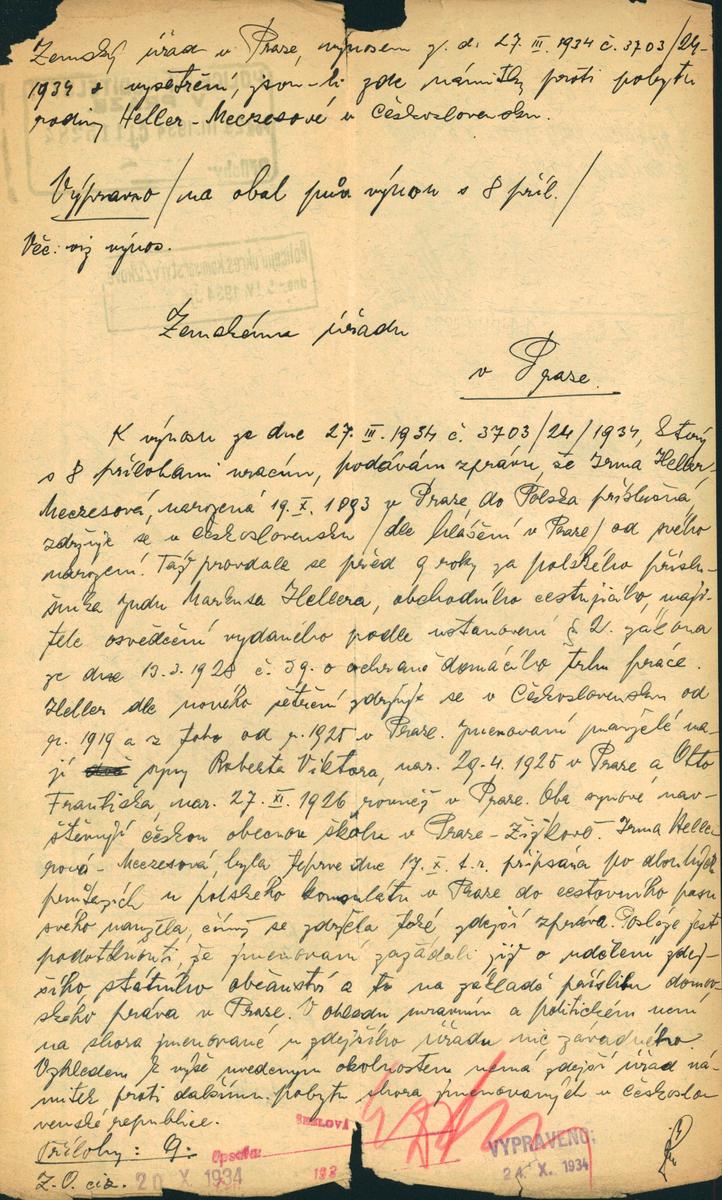 Zemský úřad v Praze, výnosem z. d. 27. III. 1934 č. 3703/24-
1934 o vyšetření, jsou-li zde námitky proti pobytu
rodiny Heller-Meczesové v Československu.
Výpravno / na obal pův výnosu s 8 příl. /
Věc: viz výnos.
Zemskému úřadu
v Praze.
K výnosu ze dne 27. III. 1934 č. 3703/24/1934, který
s 8 přílohami vracím, podávám zprávu, že Irma Heller-
Meczesová, narozená 19. X. 1893 v Praze, do Polska příslušná,
zdržuje se v Československu /dle hlášení v Praze/ od svého
narození. Táž provdala se před 9 roky za polského přísluš-
níka Judu Markusa Hellera, obchodního cestujícího, maji-
tele osvědčení vydaného podle ustanovení § 2. zákona
ze dne 13.3.1928 č. 39. o ochraně domácího trhu práce.
Heller dle nového šetření zdržuje se v Československu od
r. 1919 a z toho od r. 1925 v Praze. Jmenovaní manželé ma-
jí syny Roberta Viktora, nar. 29.4.1925 v Praze a Otto
Františka, nar. 27. XI. 1926 rovněž v Praze. Oba synové nav-
štěvují českou obecnou školu v Praze-Žižkově. Irma Helle-
rová-Meczesová, byla teprve dne 17. X. t. r. připsána po dlouhých
průtazích u polského konsulátu v Praze do cestovního pasu
svého manžela, čímž se zdržela také zdejší zpráva. Posléze jest
podotknouti, že jmenovaní zažádali již o udělení zdej-
šího státního občanství a to na základě příslibu domov-
ského práva v Praze. V ohledu mravním a politickém není
na shora jmenované u zdejšího úřadu nic závadného.
Vzhledem k výše uvedeným okolnostem nemá zdejší úřad ná-
mitek proti dalšímu pobytu shora jmenovaných v Českoslo-
venské republice.
Přílohy: 9.
Z. O. ciz.
20 X. 1934
Opsala:
SMOLOVÁ
193
VYPRAVENO:
24. X. 1934